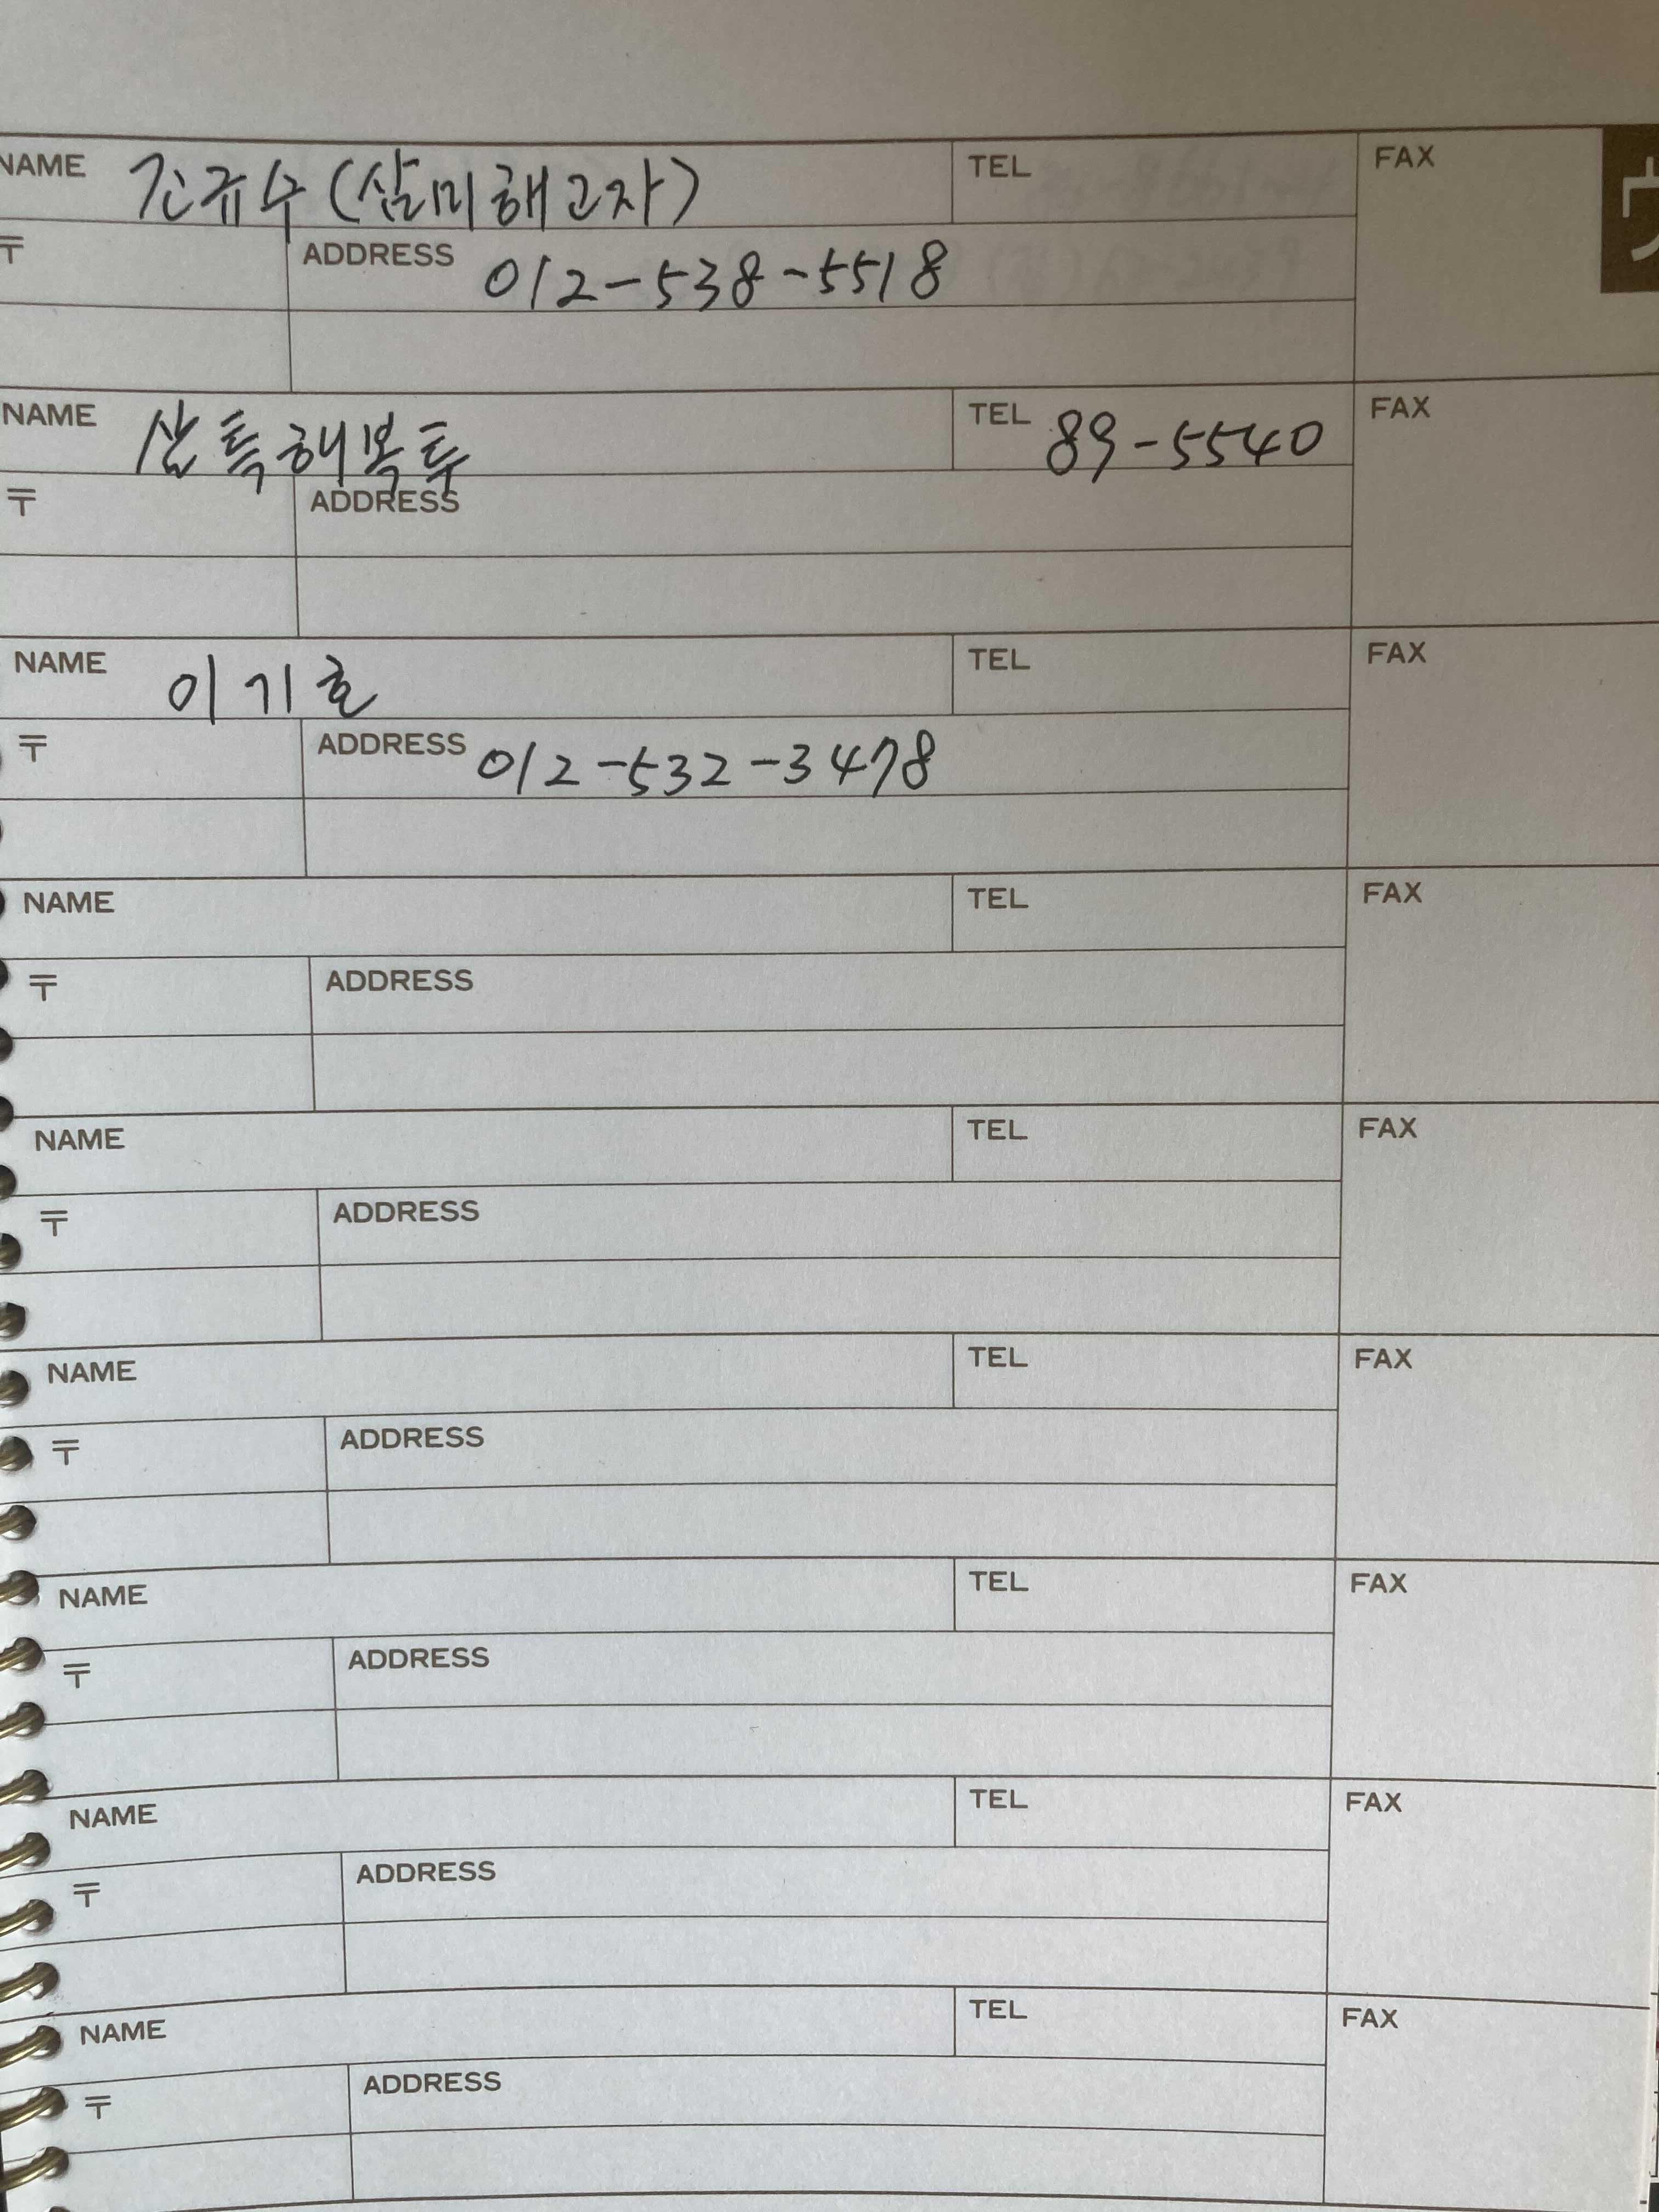 NAME 김규수(삼미해고자) TEL FAX
〒 ADDRESS 012-538-5518
NAME 삼특해복투 TEL 89-5540 FAX
〒 ADDRESS
NAME 이기호 TEL FAX
〒 ADDRESS 012-532-3478
NAME TEL FAX
〒 ADDRESS
NAME TEL FAX
〒 ADDRESS
NAME TEL FAX
〒 ADDRESS
NAME TEL FAX
〒 ADDRESS
NAME TEL FAX
〒 ADDRESS
NAME TEL FAX
〒 ADDRESS